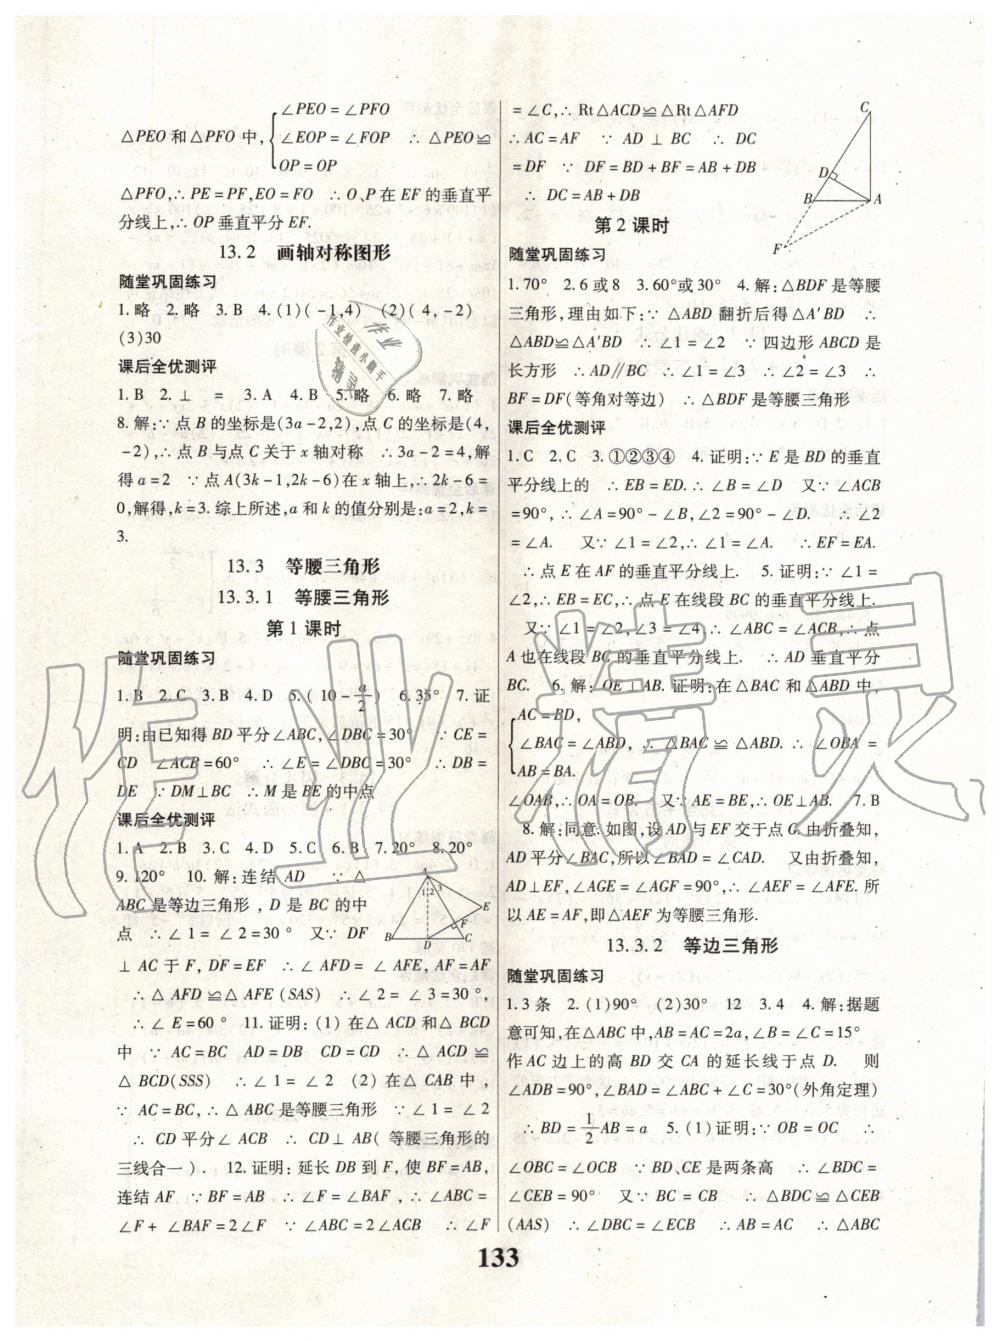 ∠PEO=∠PFO
△PEO 和△PFO 中, ∠EOP=∠FOP ∴△PEO≌
OP=OP
△PFO,∴PE=PF,EO=FO ∴O、P 在 EF 的垂直平
分线上,∴OP 垂直平分 EF.
13.2 画轴对称图形
随堂巩固练习
1.略 2.略 3.B 4.(1)(-1,4) (2)(4,-2)
(3)30
课后全优测评
1.B 2.⊥ = 3.A 4.B 5.略 6.略 7.略
8.解:∵点 B 的坐标是(3a-2,2),点 C 的坐标是(4,
-2),∴点 B 与点 C 关于 x 轴对称 ∴3a-2=4,解
得 a=2 ∵点 A(3k-1,2k-6)在 x 轴上,∴2k-6=
0,解得,k=3.综上所述,a 和 k 的值分别是:a=2,k=
3.
13.3 等腰三角形
13.3.1 等腰三角形
第 1 课时
随堂巩固练习
1.B 2.C 3.B 4.D 5.(10-a/2) 6.35° 7.证
明:由已知得 BD 平分∠ABC,∠DBC=30° ∵CE=
CD ∠ACB=60° ∴∠E=∠DBC=30° ∴DB=
DE ∵DM⊥BC ∴M 是 BE 的中点
课后全优测评
1.A 2.B 3.C 4.D 5.C 6.B 7.20° 8.20°
9.120° 10.解:连结 AD ∵△
ABC 是等边三角形,D 是 BC 的中
点 ∴∠1=∠2=30° 又∵DF
⊥AC 于 F,DF=EF ∴∠AFD=∠AFE,AF=AF
∴△AFD≌△AFE(SAS) ∴∠2=∠3=30°,
∴∠E=60° 11.证明:(1)在△ACD 和△BCD
中 ∵AC=BC AD=DB CD=CD ∴△ACD≌
△BCD(SSS) ∴∠1=∠2 (2)在△CAB 中,
∵AC=BC,∴△ABC 是等腰三角形 ∵∠1=∠2
∴CD 平分∠ACB ∴CD⊥AB(等腰三角形的
三线合一). 12.证明:延长 DB 到 F,使 BF=AB,
连结 AF ∵BF=AB ∴∠F=∠BAF,∴∠ABC=
∠F+∠BAF=2∠F ∵∠ABC=2∠ACB ∴∠F
=∠C,∴Rt△ACD≌△Rt△AFD
∴AC=AF ∵AD⊥BC ∴DC
=DF ∵DF=BD+BF=AB+DB
∴DC=AB+DB
第 2 课时
随堂巩固练习
1.70° 2.6 或 8 3.60°或 30° 4.解:△BDF 是等腰
三角形,理由如下:∵△ABD 翻折后得△A′BD ∴
△ABD≌△A′BD ∴∠1=∠2 ∵四边形 ABCD 是
长方形 ∴AD∥BC ∴∠1=∠3 ∴∠2=∠3 ∴
BF=DF(等角对等边) ∴△BDF 是等腰三角形
课后全优测评
1.C 2.C 3.①②③④ 4.证明:∵E 是 BD 的垂直
平分线上的 ∴EB=ED.∴∠B=∠D 又∵∠ACB
=90°,∴∠A=90°-∠B,∠2=90°-∠D. ∴∠2
=∠A. 又∵∠1=∠2 ∴∠1=∠A. ∴EF=EA.
∴点 E 在 AF 的垂直平分线上. 5.证明:∵∠1=
∠2,∴EB=EC,∴点 E 在线段 BC 的垂直平分线上.
又∵∠1=∠2,∠3=∠4,∴∠ABC=∠ACB,∴点
A 也在线段 BC 的垂直平分线上. ∴AD 垂直平分
BC. 6.解:OE⊥AB.证明:在△BAC 和△ABD 中,
AC=BD,
∠BAC=∠ABD, ∴△BAC≌△ABD.∴∠OBA=
AB=BA.
∠OAB,∴OA=OB. 又∵AE=BE,∴OE⊥AB. 7.B
8.解:同意.如图,设 AD 与 EF 交于点 G.由折叠知,
AD 平分∠BAC,所以∠BAD=∠CAD. 又由折叠知,
AD⊥EF,∠AGE=∠AGF=90°,∠AEF=∠AFE.所
以 AE=AF,即△AEF 为等腰三角形.
13.3.2 等边三角形
随堂巩固练习
1.3 条 2.(1)90° (2)30° 12 3.4 4.解:据题
意可知,在△ABC 中,AB=AC=2a,∠B=∠C=15°
作 AC 边上的高 BD 交 CA 的延长线于点 D. 则
∠ADB=90°,∠BAD=∠ABC+∠C=30°(外角定理)
∴BD=1/2AB=a 5.(1)证明:∵OB=OC ∴
∠OBC=∠OCB ∵BD、CE 是两条高 ∴∠BDC=
∠CEB=90° 又∵BC=CB ∴△BDC≌△CEB
(AAS) ∴∠DBC=∠ECB ∴AB=AC ∴△ABC
133